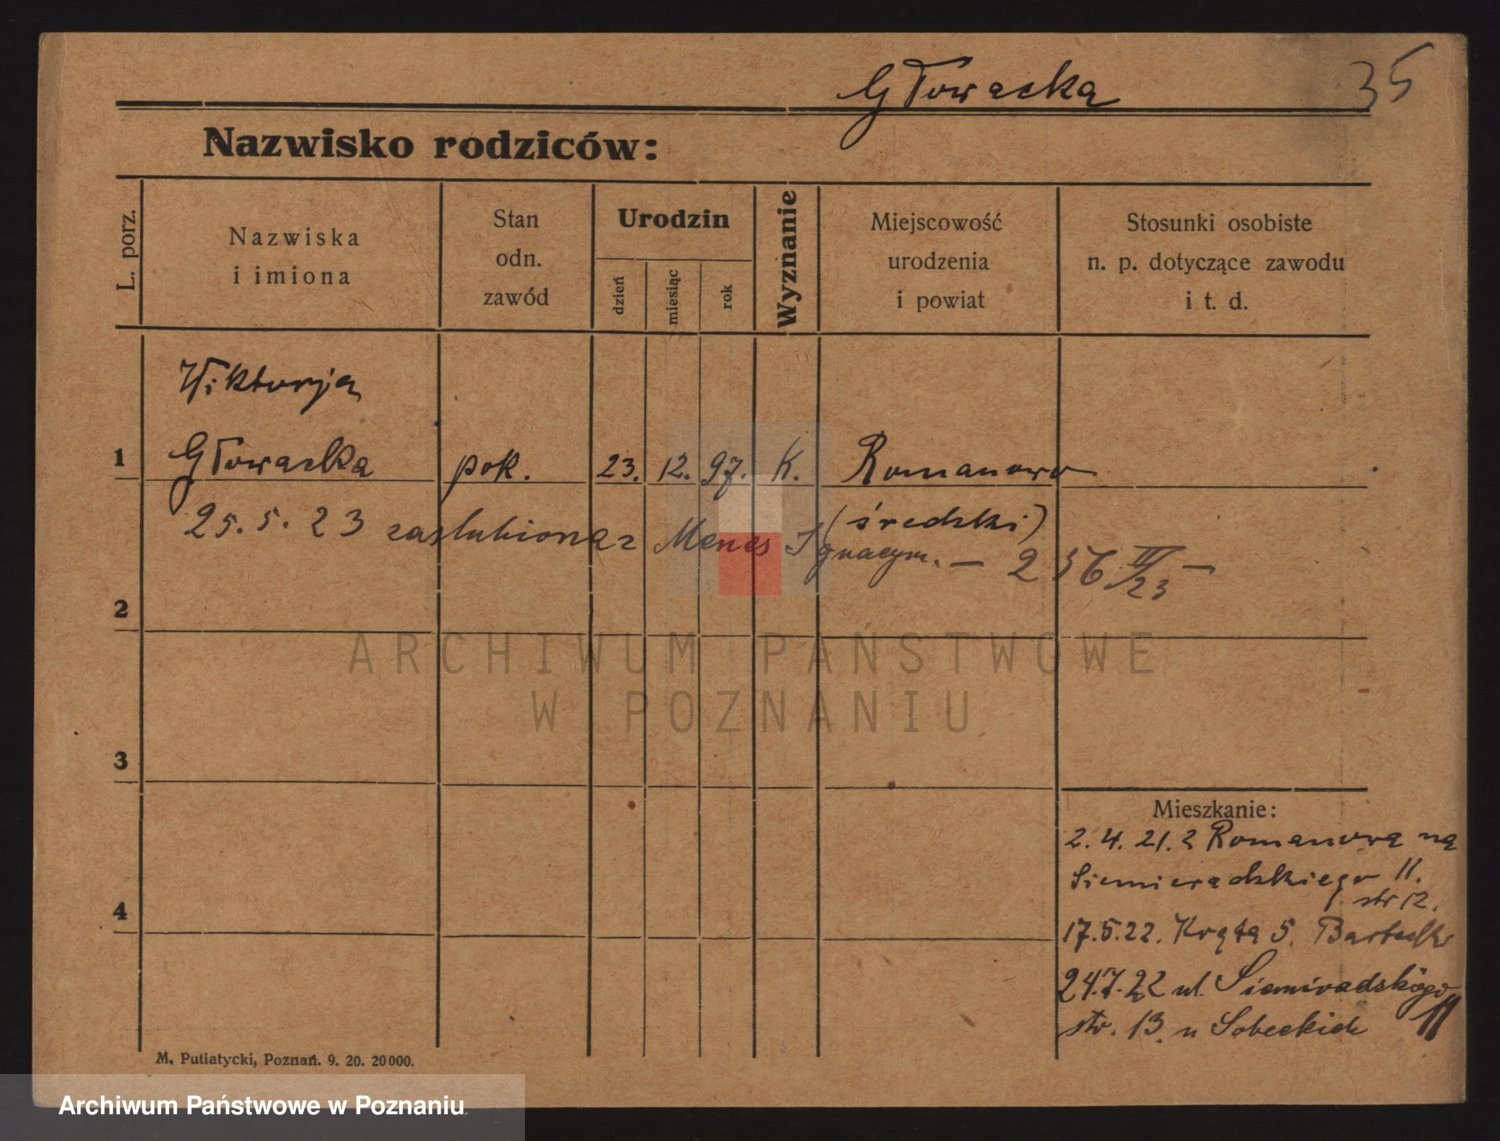 Głowacka
35
Nazwisko rodziców:
L. porz.
Nazwiska
i imiona
Stan
odn.
zawód
Urodzin
dzień
miesiąc
rok
Wyznanie
Miejscowość
urodzenia
i powiat
Stosunki osobiste
n. p. dotyczące zawodu
i t. d.
Wiktorja
1 Głowacka pok. 23. 12. 97. K. Romanowo
(średzki)
25. 5. 23 zaślubiona z Ignacym. —
2
ARCHIWUM PAŃSTWOWE
W POZNANIU
3
Mieszkanie:
2. 4. 21. z Romanowa na
Siemieradzkiego 11.
str 12.
4
17. 5. 22. Kręta 5.
24. 7. 22 ul. Siemiradzkiego 11
str. 13. u Sobeckich
M. Putiatycki, Poznań. 9. 20. 20000.
Archiwum Państwowe w Poznaniu